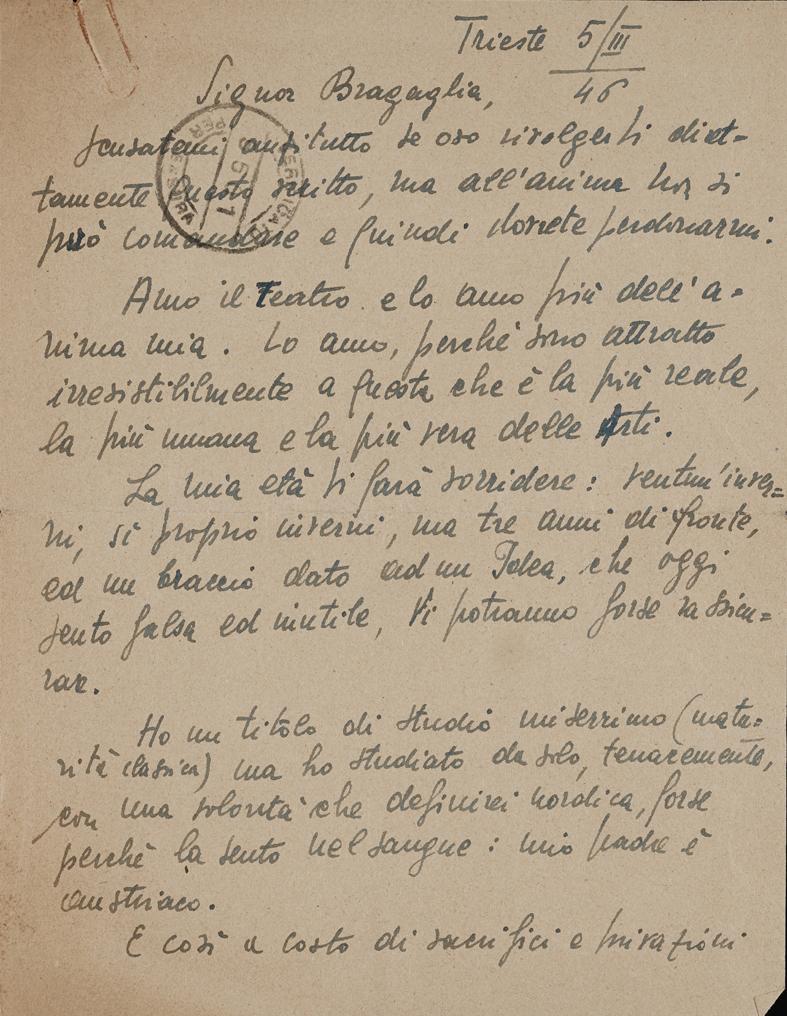 Trieste 5/III
46
Signor Bragaglia,
scusatemi anzitutto se oso rivolgerVi diret-
tamente questo scritto, ma all'anima non si
può comandare e quindi dovrete perdonarmi.
Amo il Teatro e lo amo più dell'a-
nima mia. Lo amo, perchè sono attratto
irresistibilmente a questa che è la più reale,
la più umana e la più vera delle Arti.
La mia età Vi farà sorridere: ventun'inver=
ni, sì proprio inverni, ma tre anni di fronte,
ed un braccio dato ad un Idea, che oggi
sento falsa ed inutile, Vi potranno forse rassicu=
rare.
Ho un titolo di studio miserrimo (matu=
rità classica) ma ho studiato da solo, tenacemente,
con una volontà che definirei nordica, forse
perchè la sento nel sangue: mio padre è
austriaco.
E così a costo di sacrifici e privazioni